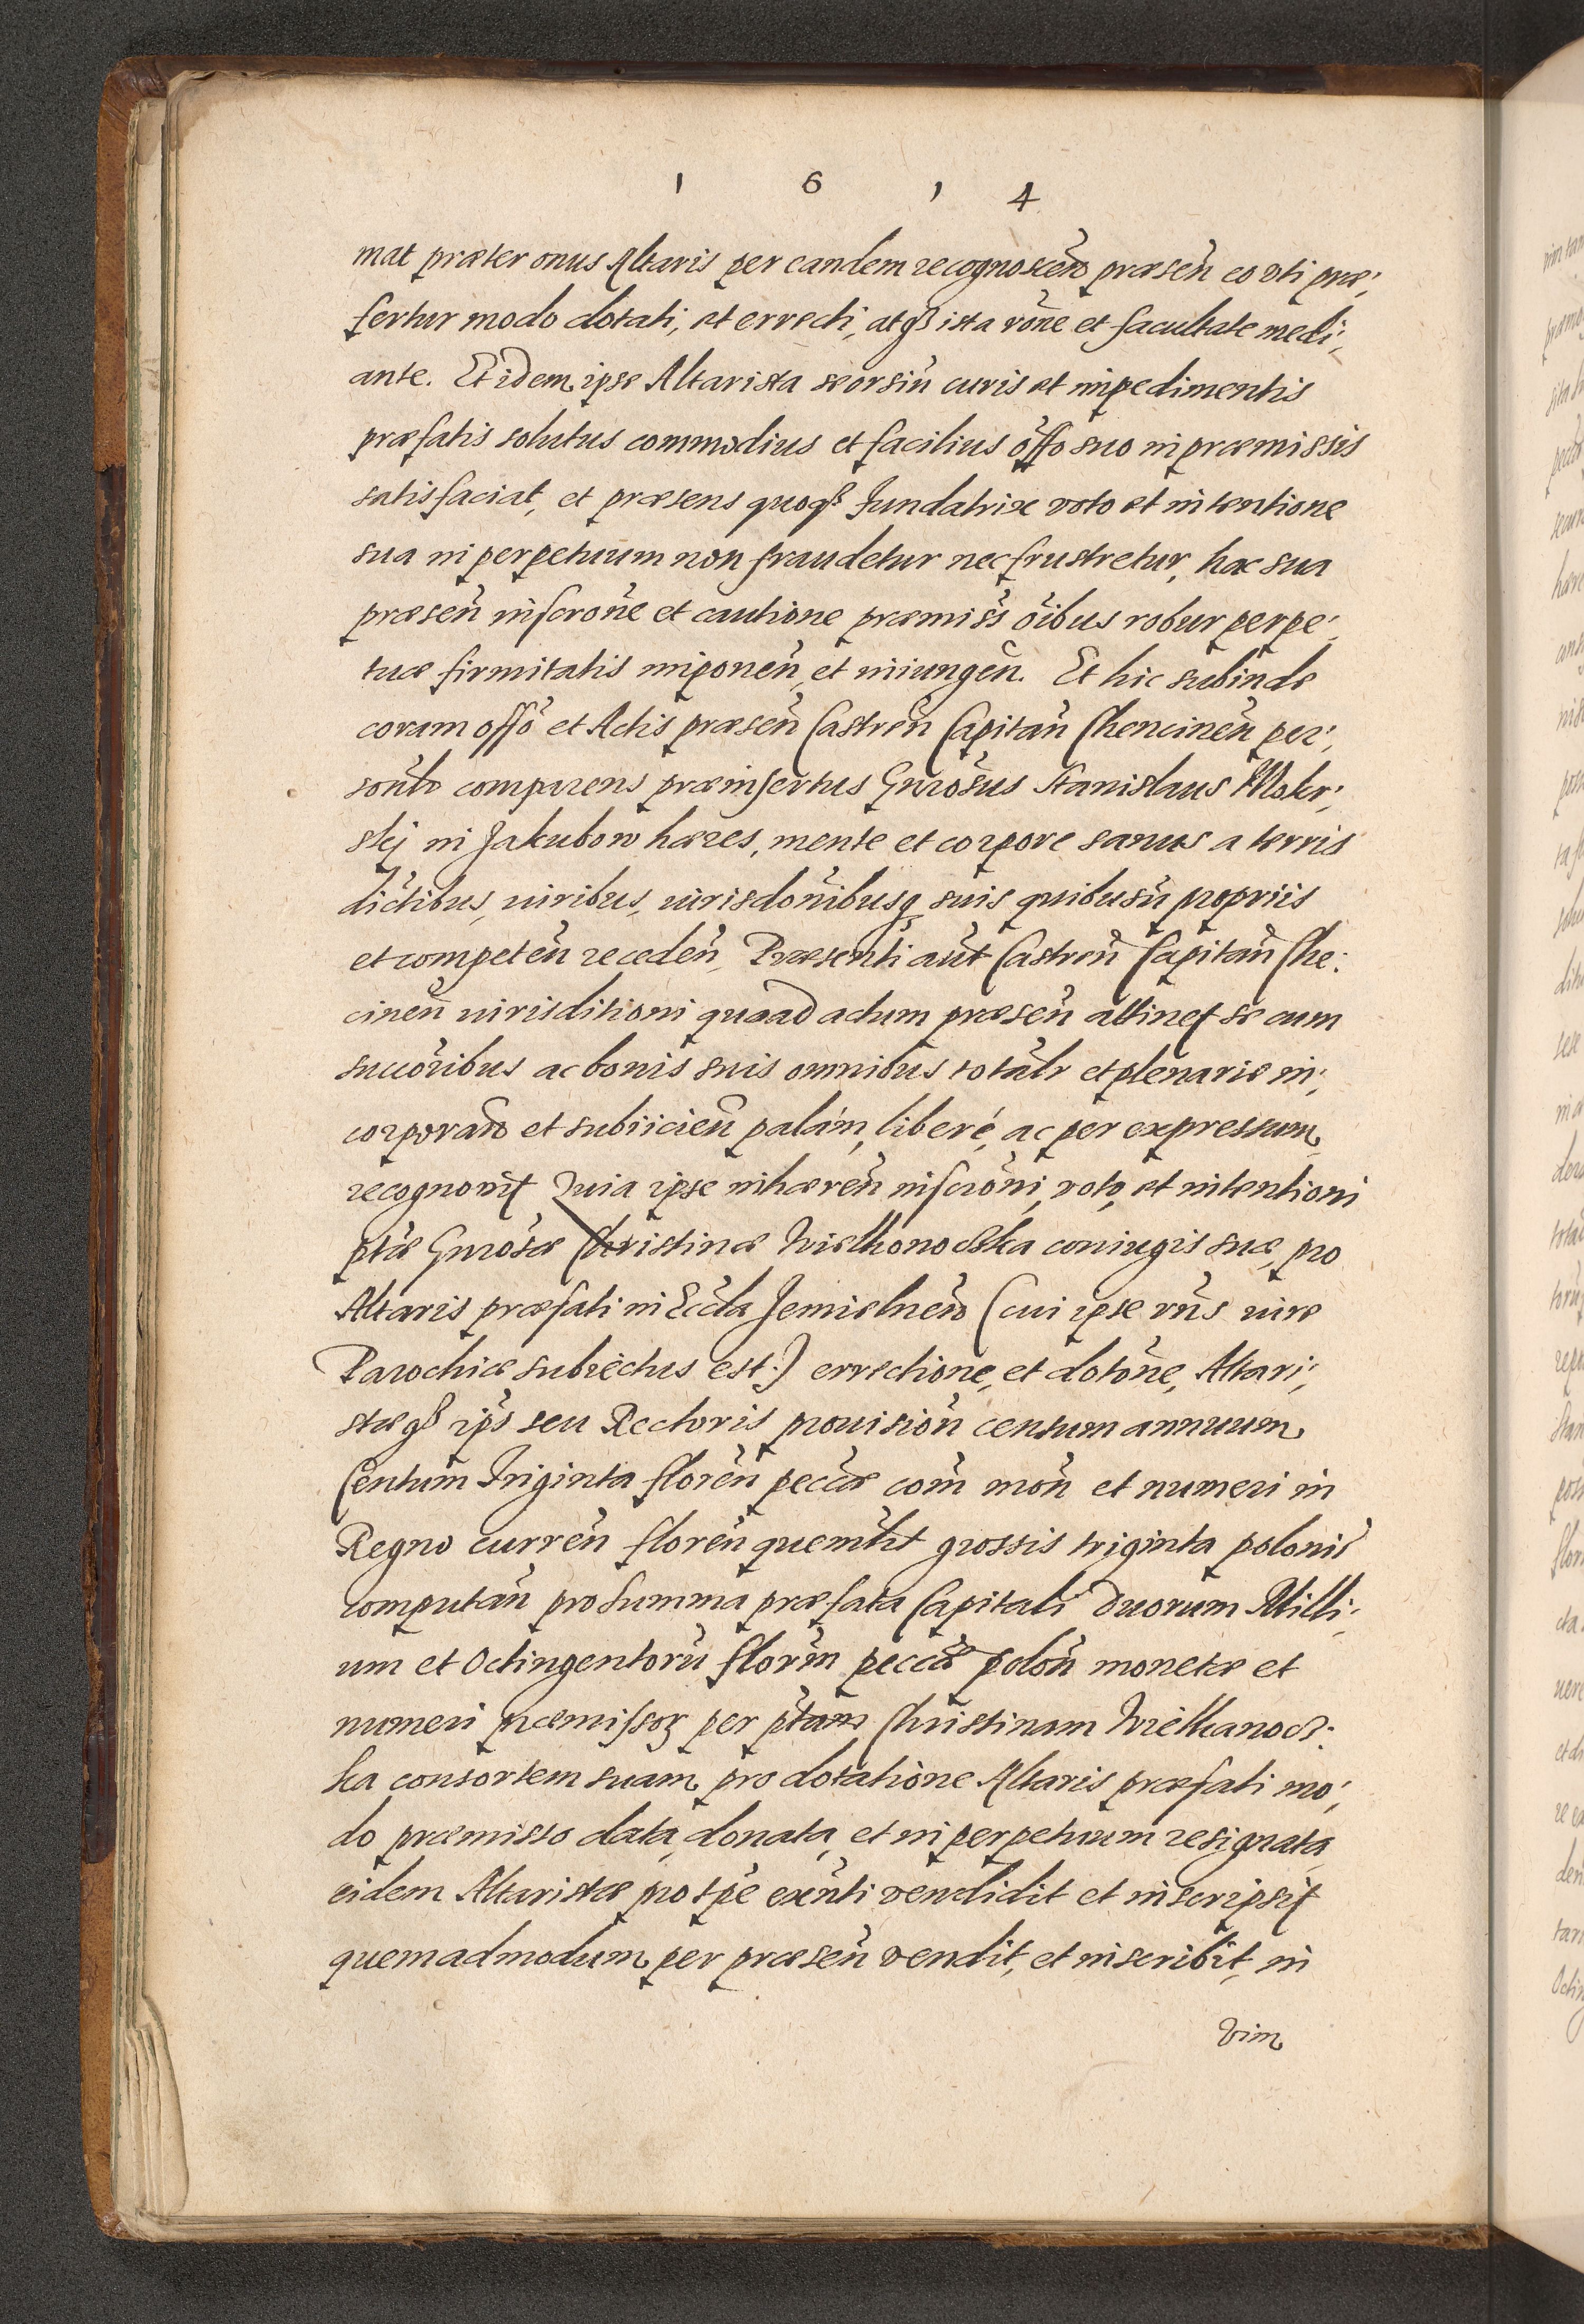 1 6 1 4
mat præter onus Altaris per eandem recognoscen̄ præsen̄ eo vti præ:
fertur modo dotati, et errecti, atq̃ ista rōne et facultate medi:
ante. Et idem ipse Altarista seorsin̄ curis et impedimentis
præfatis solutus commodius et facilius offo suo in præmissis
satisfaciat, et præsens quoq̃ Fundatrix voto et intentione
sua in perpetuum non fraudetur nec frustretur, hac sua
præsen̄ inscrōne et cautione præmiss̄ oībus robur perpe:
tuæ firmitatis imponen̄, et iniungen̄. Et hic subinde
coram offō et Actis præsen̄ Castren̄ Capitan̄ Chencinen̄ per:
son̄lr comparens præinsertus Gnrōsus Stanislaus Mokr:
skj in Jakubow hæres, mente et corpore sanus a terris
dictibus, iuribus, iurisdōnibusq suis quibusūi propriis
et competen̄ receden̄, Præsenti aūt Castren̄ Capitan̄ Che:
cinen̄ iurisditioni quoad actum præsen̄ attinet se cum
succōribus ac bonis suis omnibus totālr et plenarie in:
corporan̄ et subiicien̄ palám, liberé, ac per expressum
recognovit Quia ipse inhæren̄ inscrōni, voto, et intentioni
ptæ Gnrōsæ Christinæ Wielkonocska coniugis suæ, pro
Altaris præfati in Eccła Jemielnen̄ (cui ipse vn̄s iure
Parochiæ subiectus est:) errectione, et dotōne, Altari:
stæq̃ ips̄ seu Rectoris prouision̄ censum annuum
Centum Triginta floren̄ peccūæ com̄ mon̄ et numeri in
Regno curren̄ floren̄ quemlīt grossis triginta polonis
computan̄ pro Summa præfata Capitali Duorum Milli:
um et Octingentorū floren̄ peccūæ polon̄ monetæ et
numeri præmissoꝝ per ptam Christinam Wielkanocs:
ka consortem suam pro dotatione Altaris præfati mo:
do præmisso data, donata, et in perpetuum resignata
eidem Altaristæ pro tpē exn̄ti vendidit et inscripsit
quemadmodum per præsen̄ vendit, et inscribit, in
vim